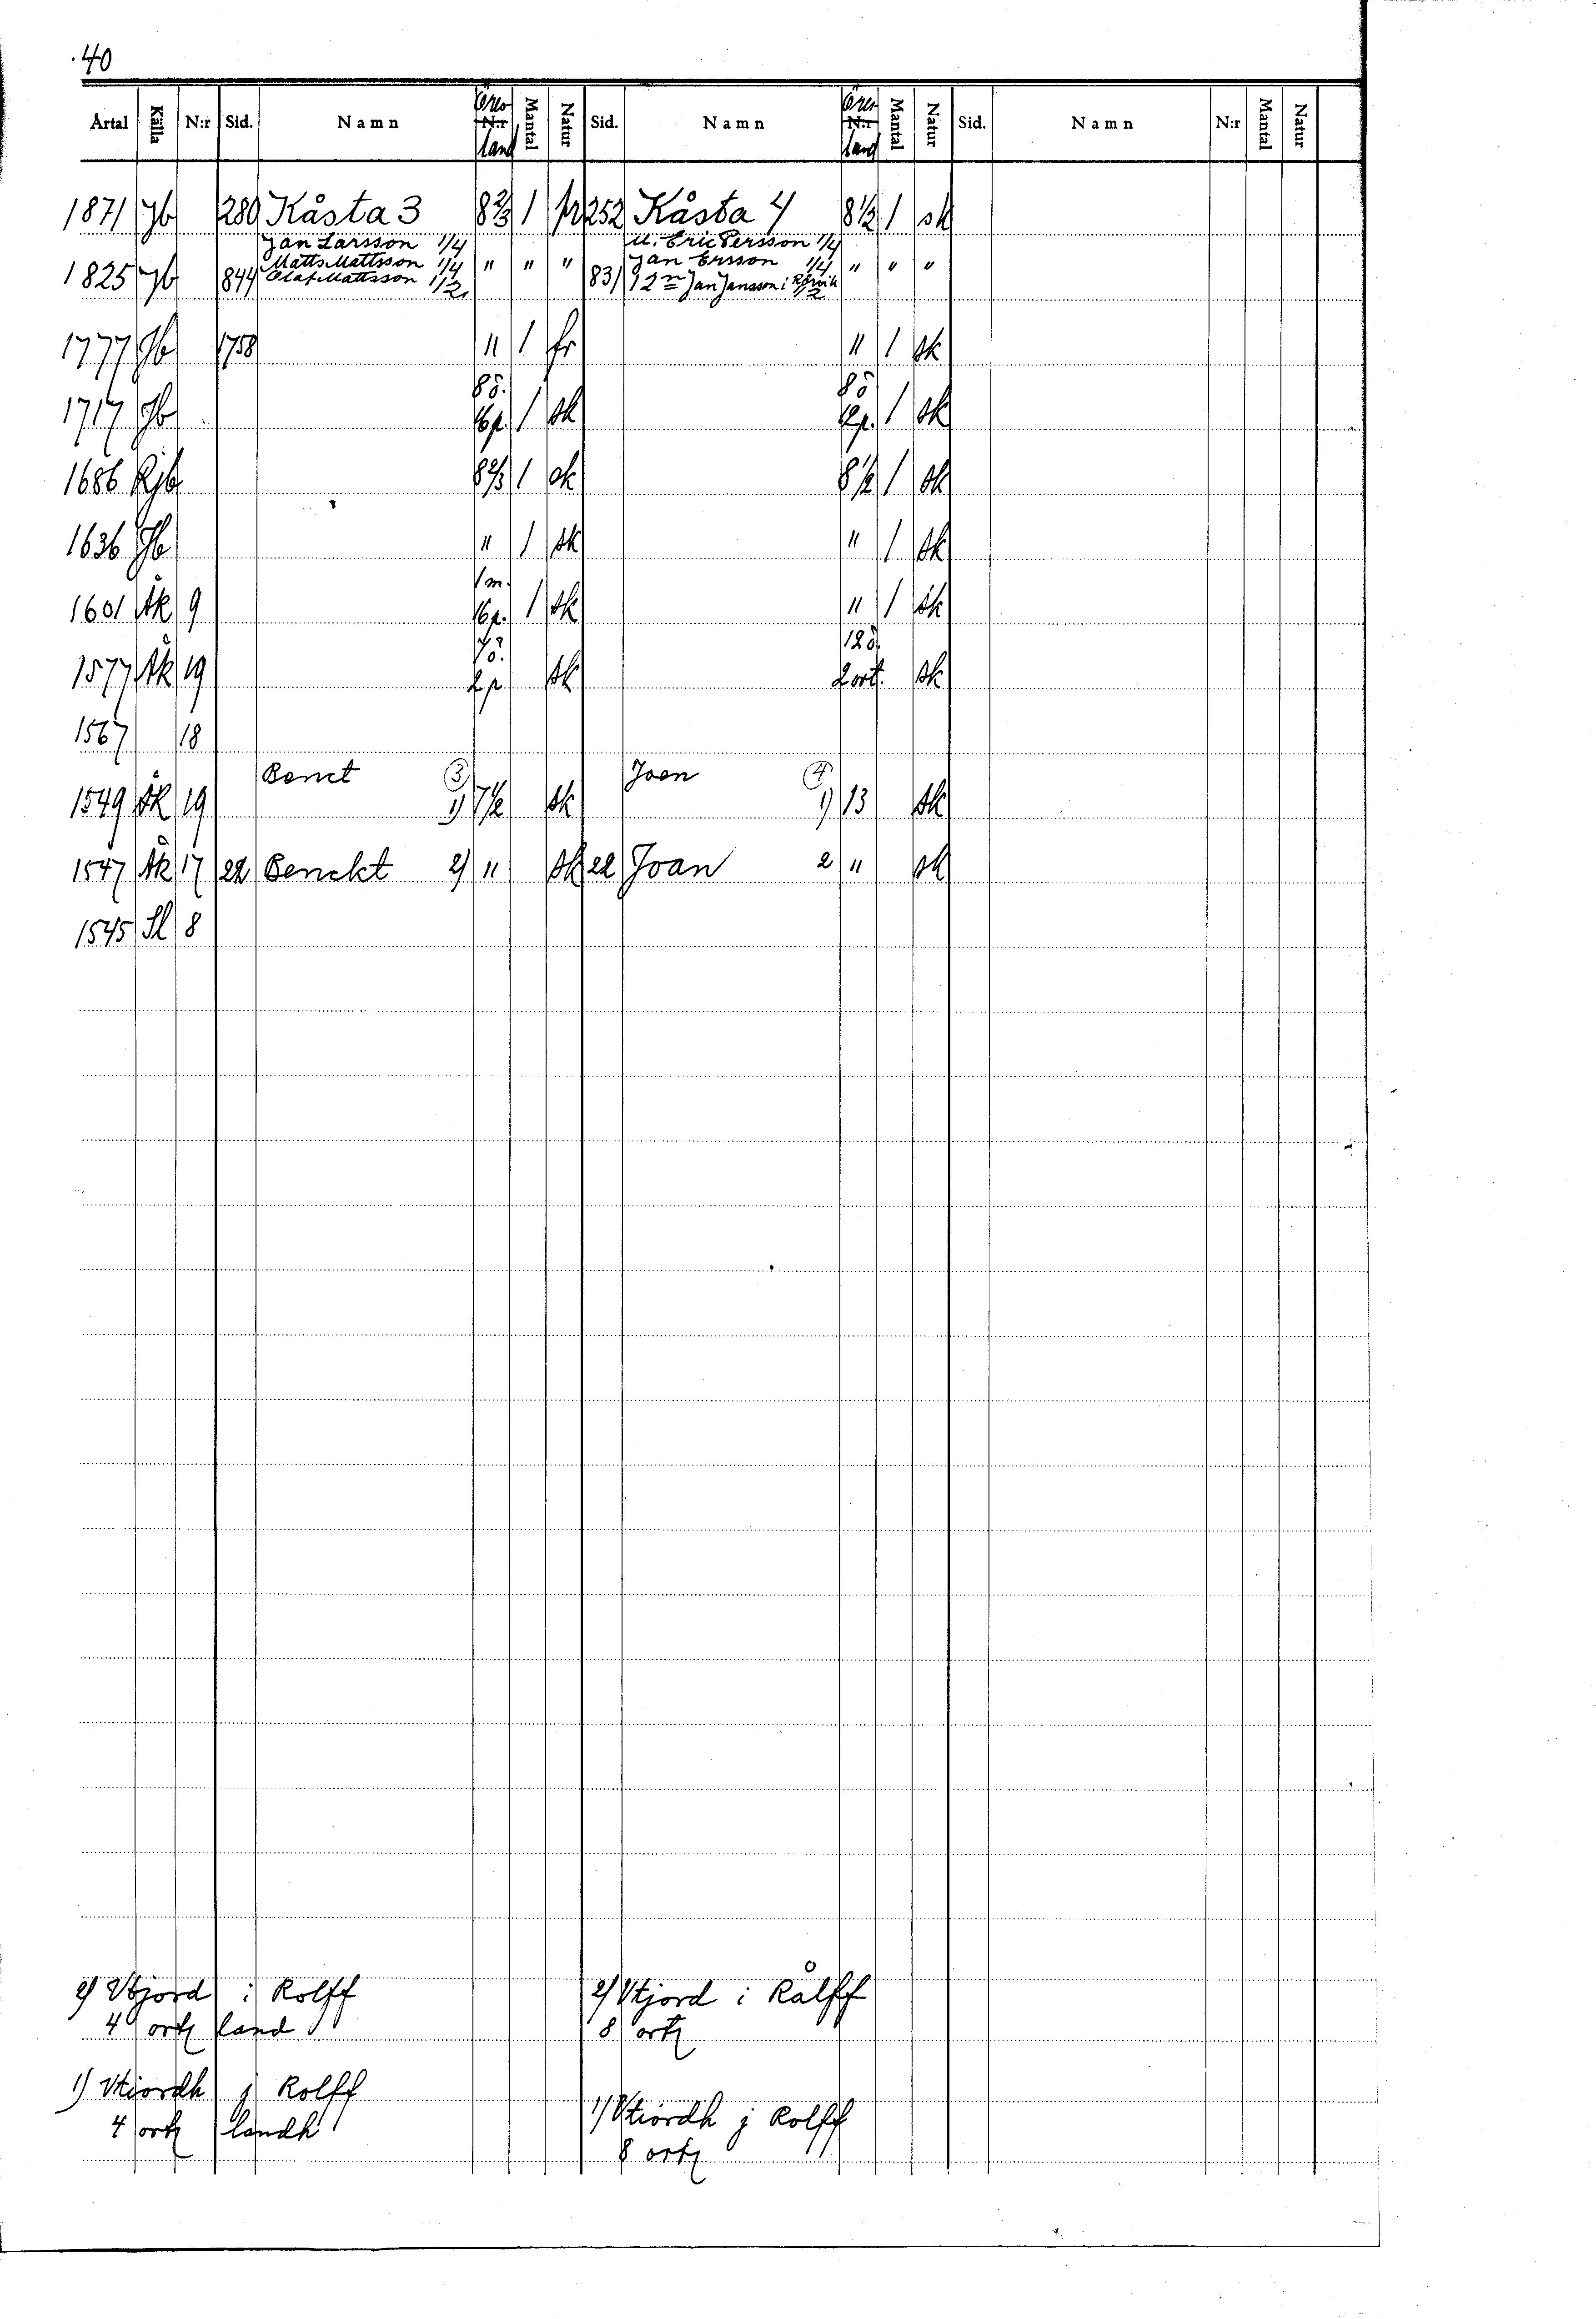 40
Årtal Källa N:r Sid. Namn Öres N:r land Mantal Natur Sid. Namn Öres N:r land Mantal Natur Sid. Namn N:r Mantal Natur
1871 Jb 280 Kåsta 3 8 2/3 1 fr 252 Kåsta 4 8 1/2 1 sk
Jan Larsson 1/4 U. Eric Persson 1/4
1825 Jb 844 Matts Mattsson 1/4 " " " 831 Jan Ersson 1/4 " " "
Olof Mattsson 1/2 Jan Jansson i 1/2
1777 Jb 1758 " 1 fr " 1 sk
8ö. 8ö
1717 Jb 16p. 1 sk 12p. 1 sk
1686 Rjb 8 2/3 1 sk 8 1/2 1 sk
1636 Jb " 1 sk " 1 sk
1 m.
1601 Åk 9 16p. 1 sk " 1 sk
7ö. 12ö.
1577 Åk 19 2p sk 2 ort. sk
1567 18
Benct 3 Joen 4
1549 Åk 19 1) 7 1/2 sk 1) 13 sk
1547 Åk 17 22 Benckt 2) " sk 22 Joan 2 " sk
1545 Sl 8
2) Vtjord i Rolff 2) Vtjord i Rålff
4 ortz land 8 ortz
1) Vtiordh j Rolff 1) Vtiordh j Rolff
4 ortz landh 8 ortz